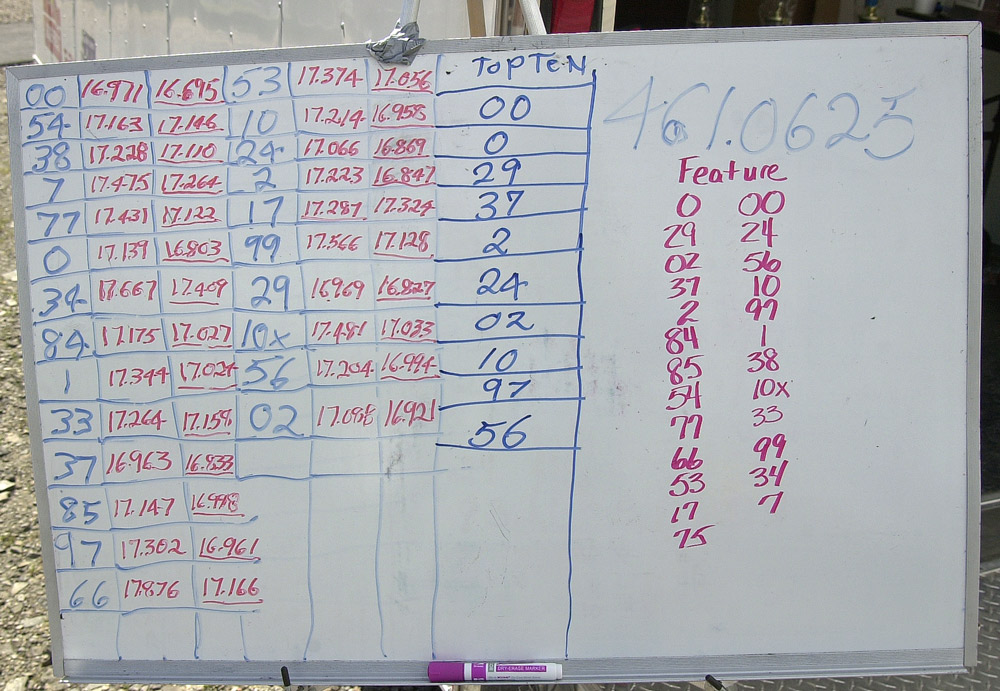 00 16.971 16.695 53 17.374 17.056 TOPTEN
54 17.163 17.146 10 17.214 16.958 00
38 17.228 17.110 24 17.066 16.869 0
7 17.475 17.264 2 17.223 16.847 29
77 17.431 17.122 17 17.287 17.324 37
0 17.139 16.803 99 17.566 17.128 2
34 17.667 17.409 29 16.969 16.827 24
84 17.175 17.027 10x 17.481 17.033 02
1 17.344 17.024 56 17.204 16.994 10
33 17.264 17.159 02 17.088 16.921 97
37 16.963 16.833 56
85 17.147 16.998
97 17.302 16.961
66 17.876 17.166
461.0625
Feature
0 00
29 24
02 56
37 10
2 97
84 1
85 38
54 10x
77 33
66 99
53 34
17 7
75
DRY-ERASE MARKER